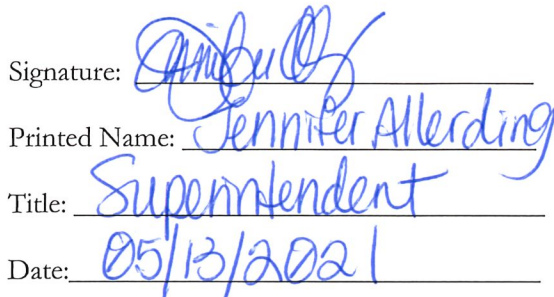 Signature:
Printed Name: Jennifer Allerding
Title: Superintendent
Date: 05/13/2021